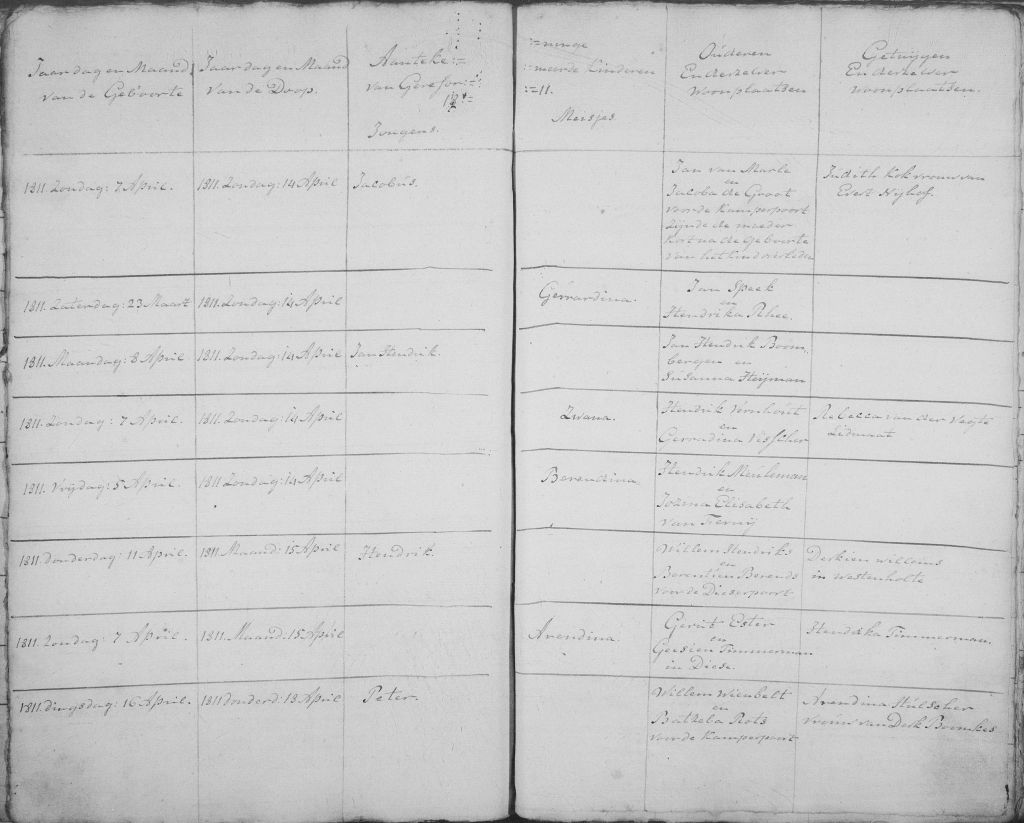 Jaar dag en Maand
van de Geboorte
Jaar dag en Maand
van de Doop.
Aanteke:=
van Gerefor:=
Jongens.
:=ninge
:=meerde Kinderen
:=11.
Meisjes
Ouderen
En derzelver
woonplaatsen
Getuijgen
En derzelver
woonplaatsen.
1811. Zondag: 7 April.
1811. Zondag: 14 April
Jacobus.
Jan van Marle
en
Jacoba de Groot
voor de Kamperpoort
zijnde de moeder
kort na de geboorte
van het kind overleden
Judith Kok vrouw van
Evert Nyhof.
1811. Zaterdag: 23 Maart
1811. Zondag: 14 April
Gerrardina.
Jan Speek
en
Hendrika Rhee.
1811. Maandag: 8 April.
1811. Zondag: 14 April
Jan Hendrik.
Jan Hendrik Boom-
bergen en
Susanna Heijman
1811. Zondag: 7 April.
1811. Zondag: 14 April
Zwana.
Hendrik Vernhout
en
Gerradina Visscher
Rebecca van der Vegte
Lidmaat
1811. Vrijdag: 5 April.
1811 Zondag: 14 April
Berendina
Hendrik Meuleman
en
Joanna Elisabeth
van
1811. Donderdag: 11 April.
1811. Maand: 15 April
Hendrik.
Willem Hendriks
en
Berentien Berends
voor de Dieserpoort
Derkien willems
in westenholte
1811. Zondag: 7 April.
1811. Maand: 15 April
Arendina.
Gerrit Ester
en
Geesien Timmerman
in Diese.
Hendrika Timmerman.
1811. Dingsdag: 16 April.
1811 Donderd: 18 April
Peter.
Willem Wienbelt
en
Batseba Rots
voor de Kamperpoort
Arendina Hulscher
vrouw van Derk Boomkes